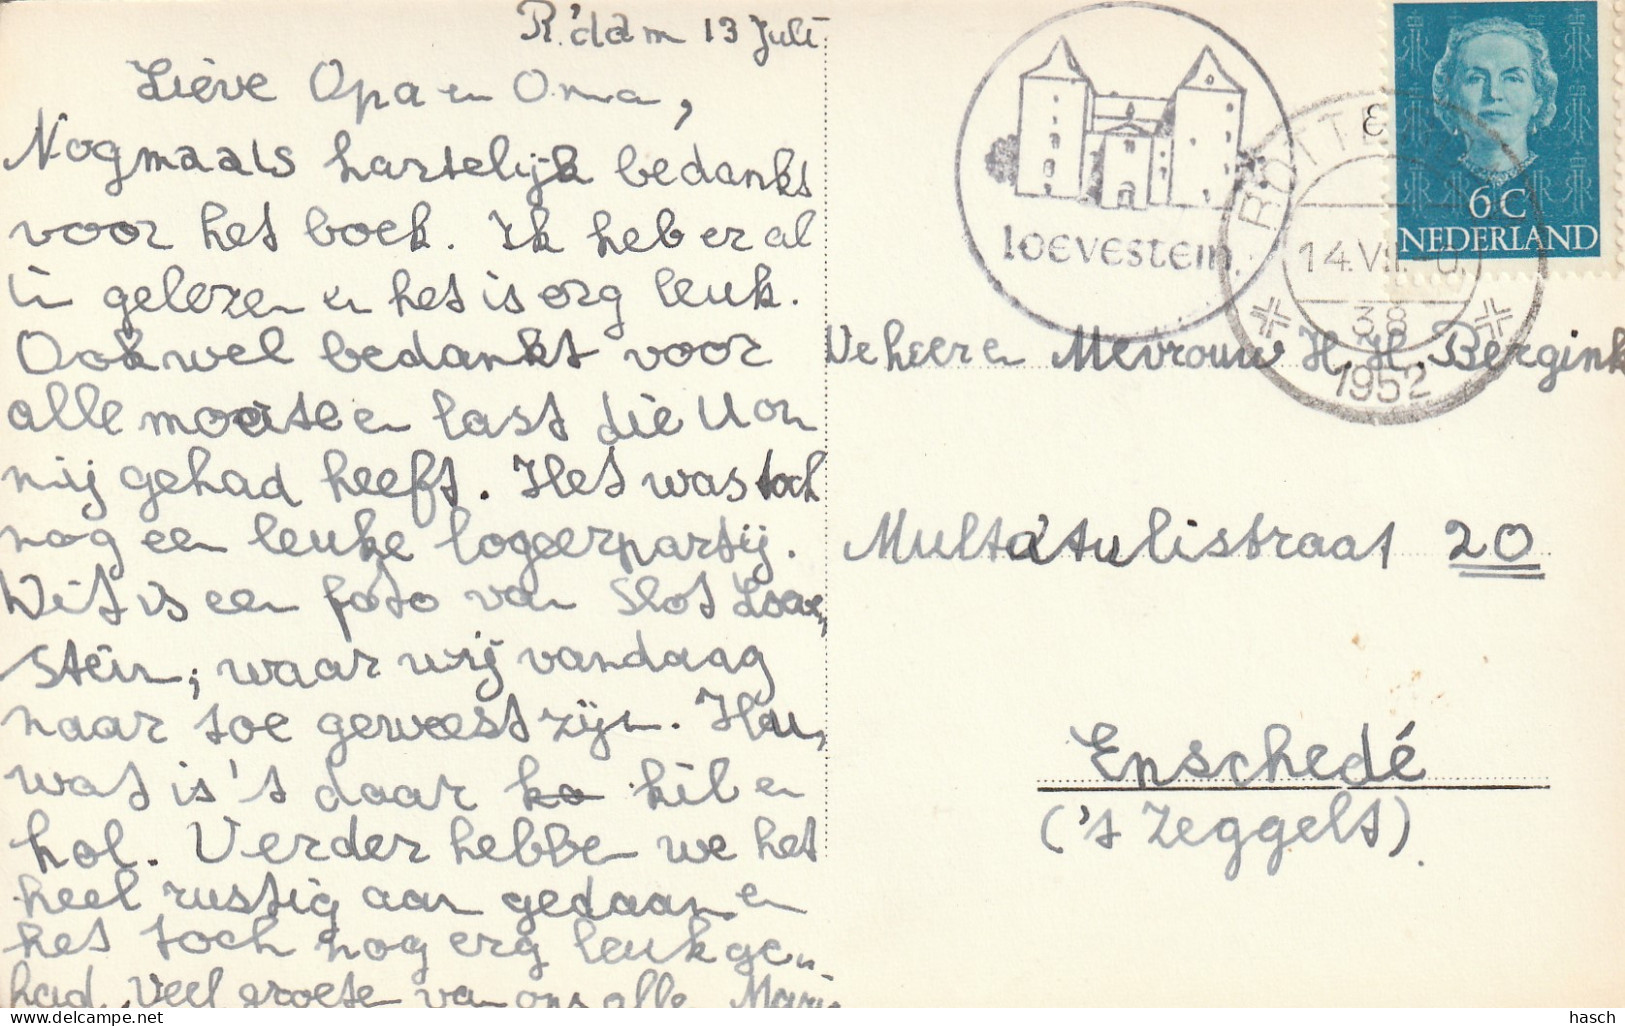 R'dam 13 Juli
Lieve Opa en Oma,
Nogmaals hartelijk bedankt
voor het boek. Ik heb er al
in gelezen en het is erg leuk.
Ook wel bedankt voor
alle moeite en last die U van
mij gehad heeft. Het was toch
nog een leuke logeerpartij.
Dit is een foto van Slot Loeve-
stein, waar wij vandaag
naar toe geweest zijn. Hu,
wat is 't daar kil en
hol. Verder hebben we het
heel rustig aan gedaan en
het toch nog erg leuk ge-
had. Veel groeten van ons alle
loevestein
ROTTE
14.VII
38
1952
6C
NEDERLAND
De heer en Mevrouw H. H. Bergink
Multatulistraat 20
Enschedé
('t Zeggelt)
hasch